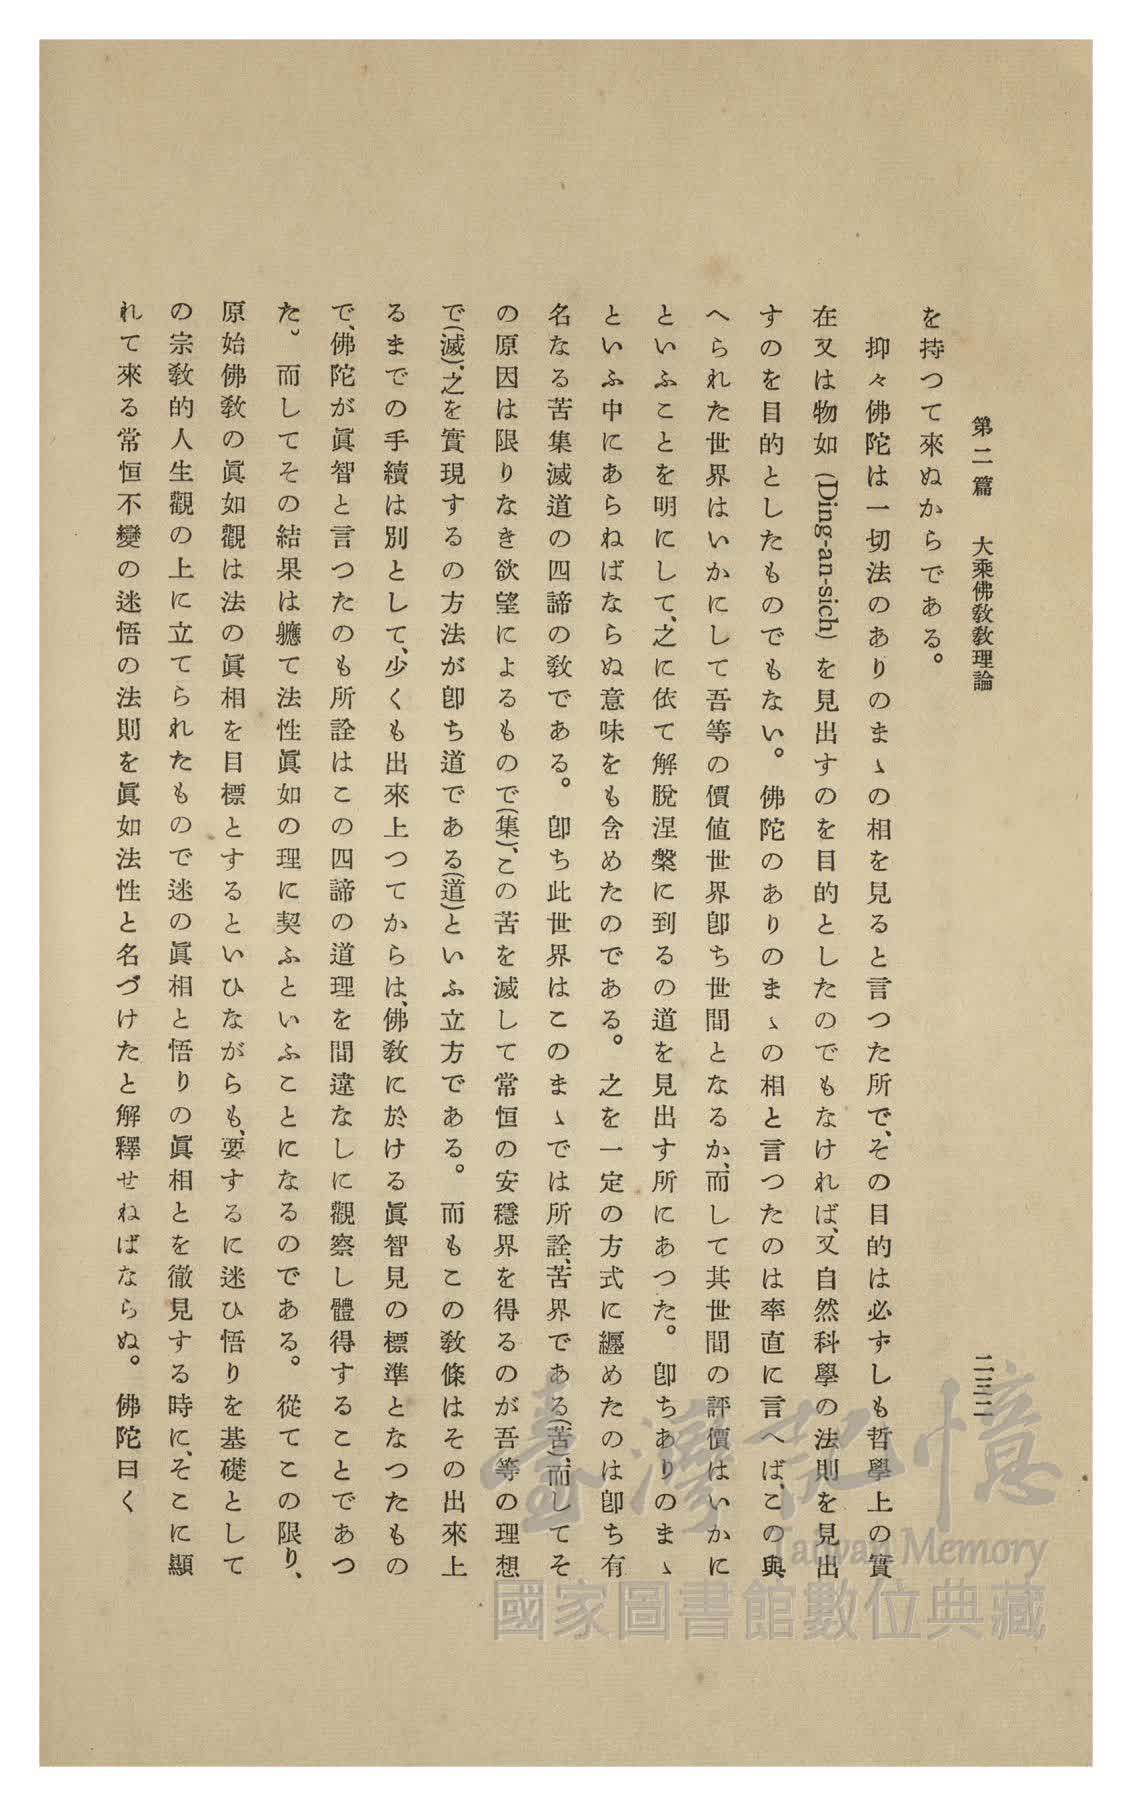 第二篇　大乘佛敎敎理論　二三二
を持つて來ぬからである。
抑々佛陀は一切法のありのまゝの相を見ると言つた所で、その目的は必ずしも哲學上の實
在又は物如 (Ding-an-sich) を見出すのを目的としたのでもなければ、又自然科學の法則を見出
すのを目的としたものでもない。佛陀のありのまゝの相と言つたのは率直に言へば、この與
へられた世界はいかにして吾等の價値世界卽ち世間となるか、而して其世間の評價はいかに
といふことを明にして、之に依て解脫涅槃に到るの道を見出す所にあつた。卽ちありのまゝ
といふ中にあらねばならぬ意味をも含めたのである。之を一定の方式に纒めたのは卽ち有
名なる苦集滅道の四諦の敎である。卽ち此世界はこのまゝでは所詮、苦界である(苦)、而してそ
の原因は限りなき欲望によるもので(集)、この苦を滅して常恒の安穩界を得るのが吾等の理想
で(滅)、之を實現するの方法が卽ち道である(道)といふ立方である。而もこの敎條はその出來上
るまでの手續は別として、少くも出來上つてからは、佛敎に於ける眞智見の標準となつたもの
で、佛陀が眞智と言つたのも所詮はこの四諦の道理を間違なしに觀察し體得することであつ
た。而してその結果は軈て法性眞如の理に契ふといふことになるのである。從てこの限り、
原始佛敎の眞如觀は法の眞相を目標とするといひながらも、要するに迷ひ悟りを基礎として
の宗敎的人生觀の上に立てられたもので迷の眞相と悟りの眞相とを徹見する時に、そこに顯
れて來る常恒不變の迷悟の法則を眞如法性と名づけたと解釋せねばならぬ。佛陀曰く
臺灣記憶
Taiwan Memory
國家圖書館數位典藏